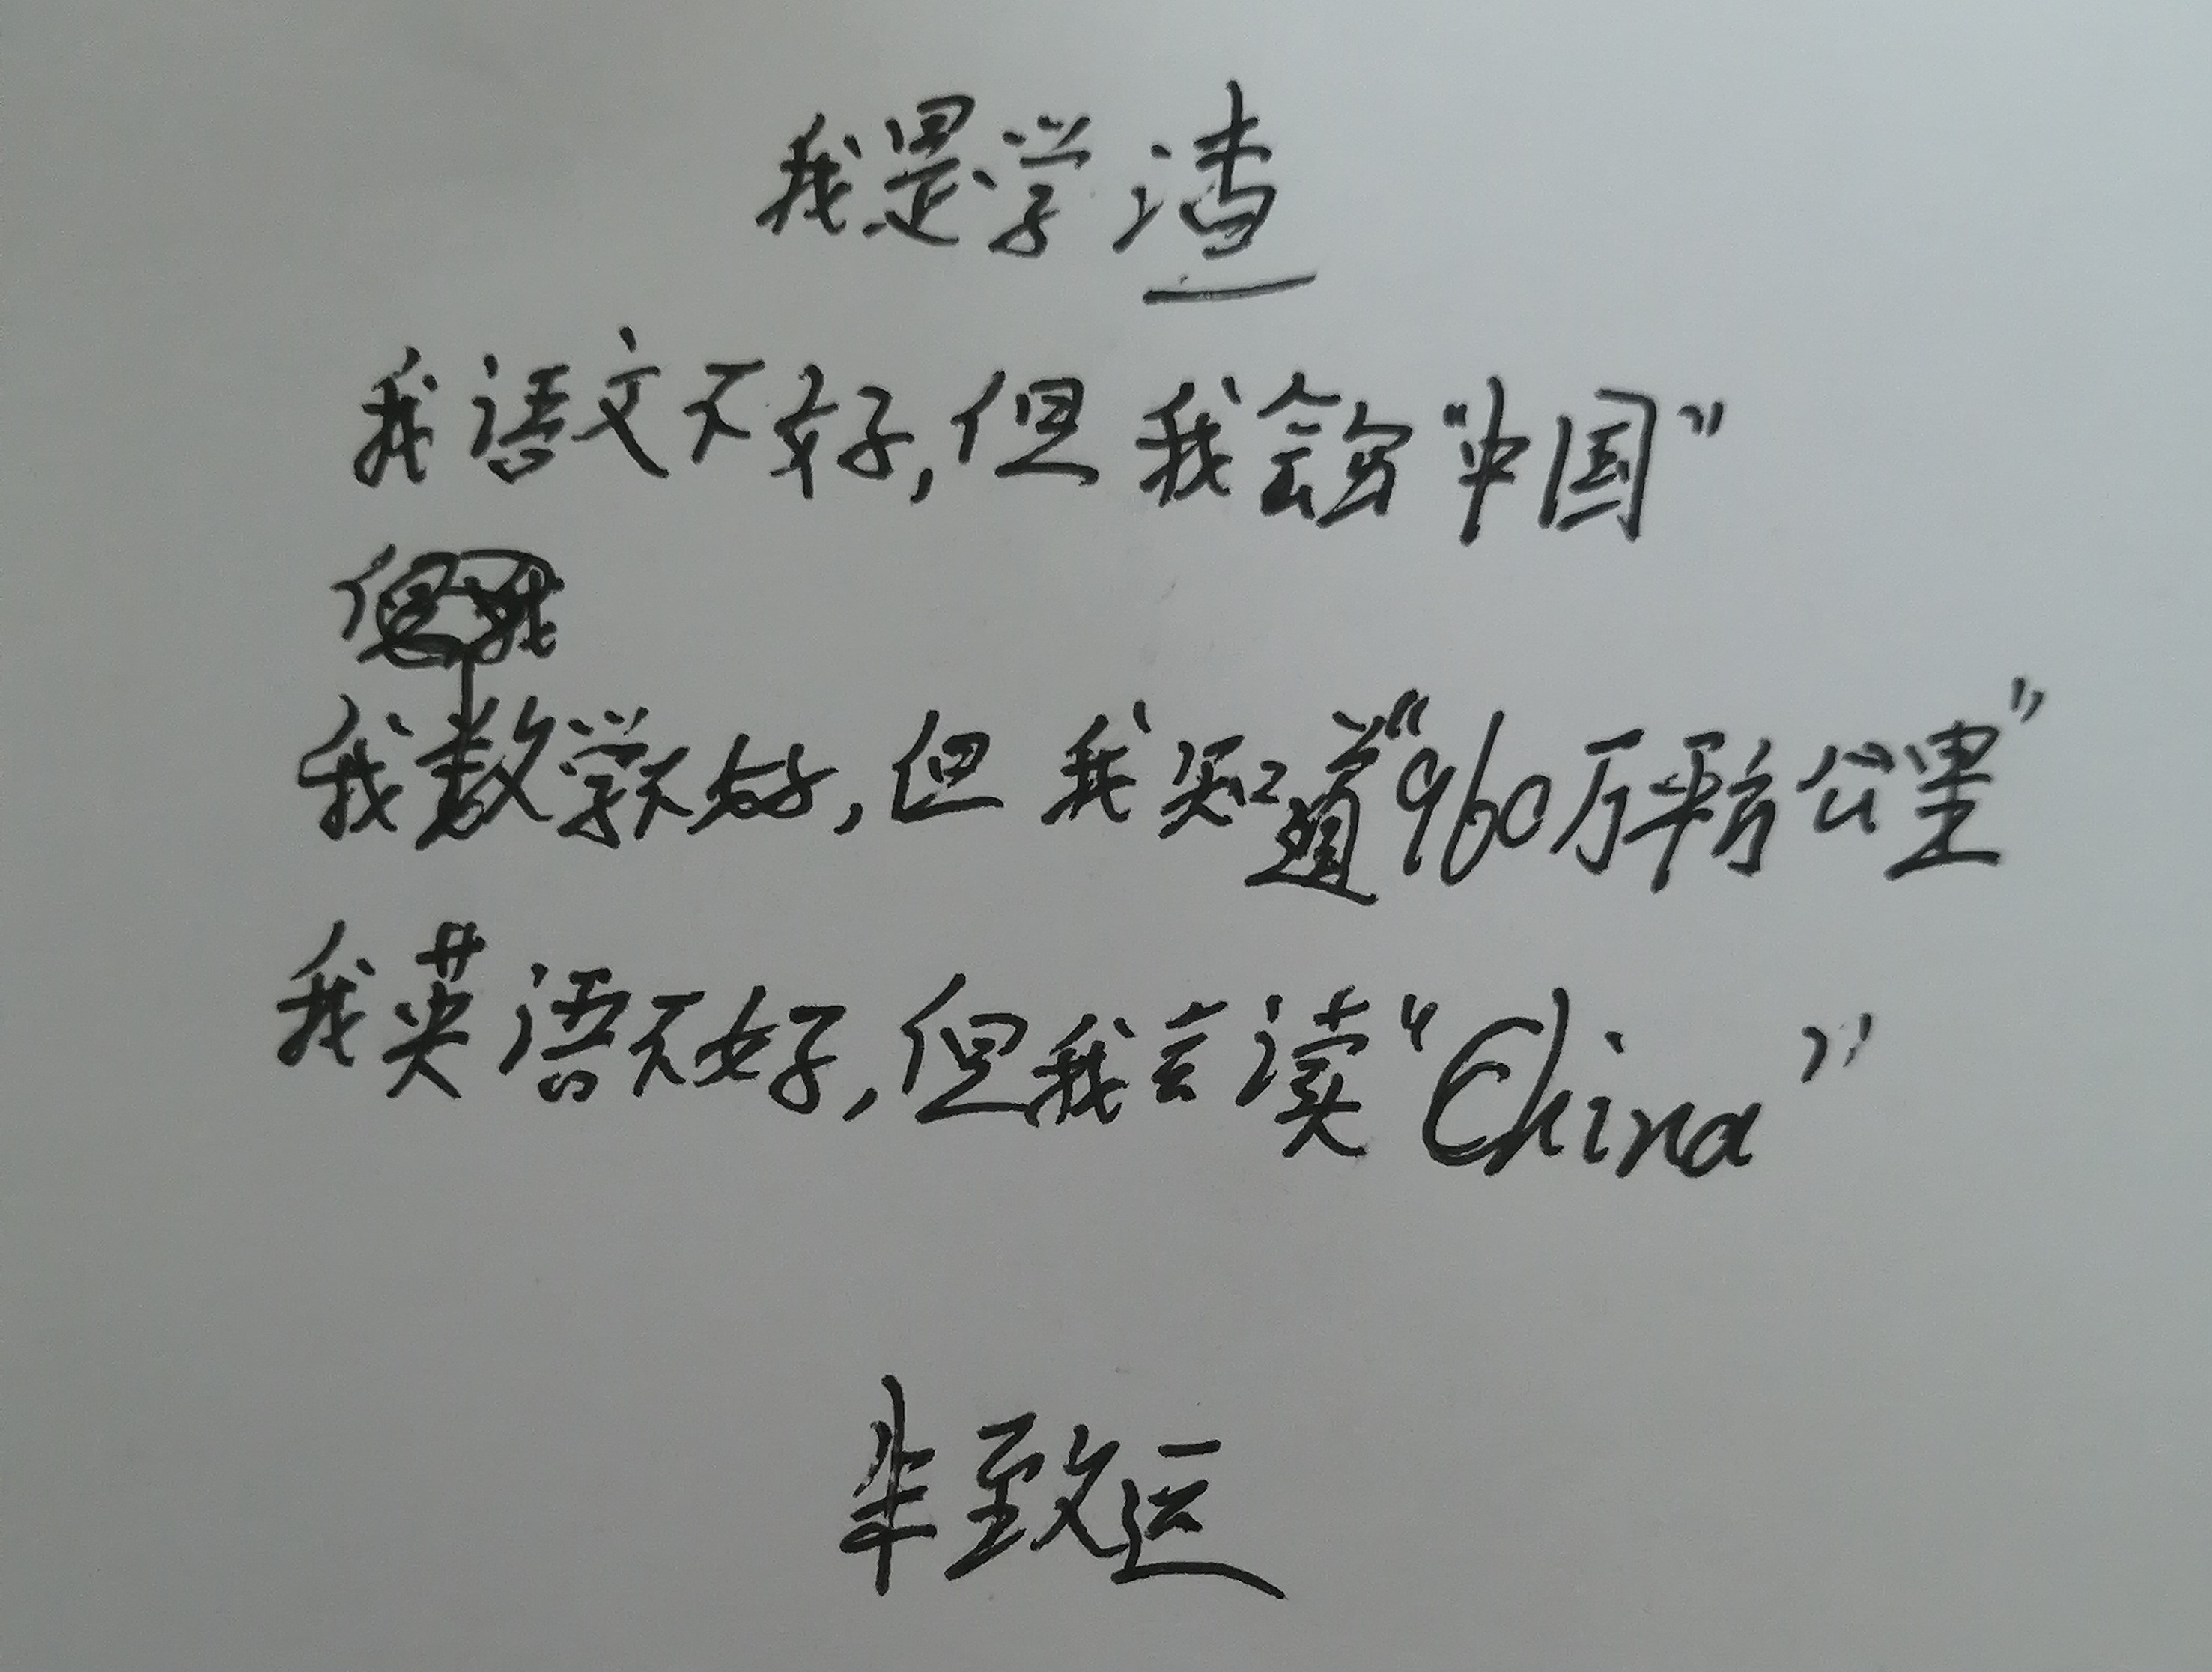 我是学渣
我语文不好,但我会写“中国”
我数学不好,但我知道“960万平方公里”
我英语不好,但我会读“China”
致运